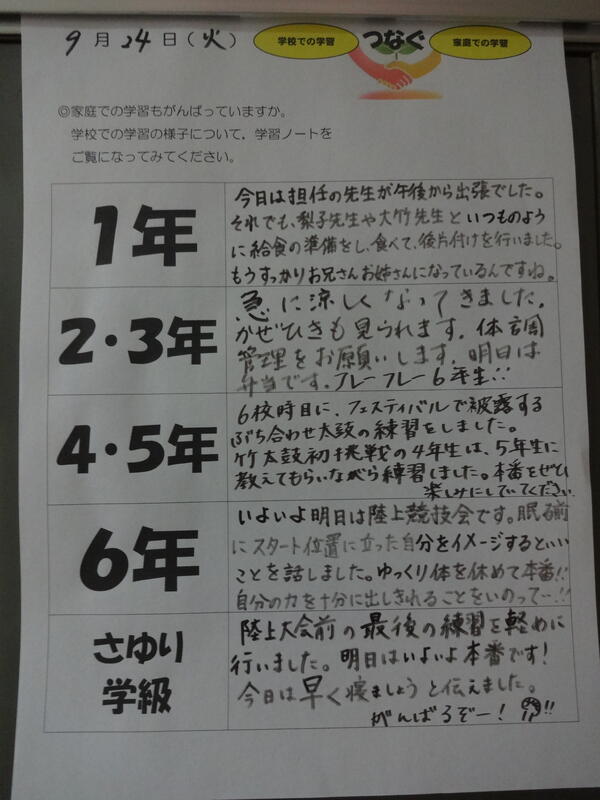 9月24日(火)
学校での学習
つなぐ
家庭での学習
◎家庭での学習もがんばっていますか。
学校での学習の様子について，学習ノートを
ご覧になってみてください。
1年
今日は担任の先生が午後から出張でした。
それでも、梨子先生や大竹先生といつものよう
に給食の準備をし、食べて、後片付けを行いました。
もうすっかりお兄さんお姉さんになっているんですね。
2・3年
急に涼しくなってきました。
かぜひきも見られます。体調
管理をお願いします。明日は
弁当です。フレーフレー6年生!!
4・5年
6校時目に、フェスティバルで披露する
ぶち合わせ太鼓の練習をしました。
竹太鼓初挑戦の4年生は、5年生に
教えてもらいながら練習しました。本番をぜひ
楽しみにしていてください
6年
いよいよ明日は陸上競技会です。眠る前
にスタート位置に立った自分をイメージするといい
ことを話しました。ゆっくり体を休めて本番!!
自分の力を十分に出しきれることをいのって…!!
さゆり
学級
陸上大会前の最後の練習を軽めに
行いました。明日はいよいよ本番です!
今日は早く寝ましょうと伝えました。
がんばるぞー!!!